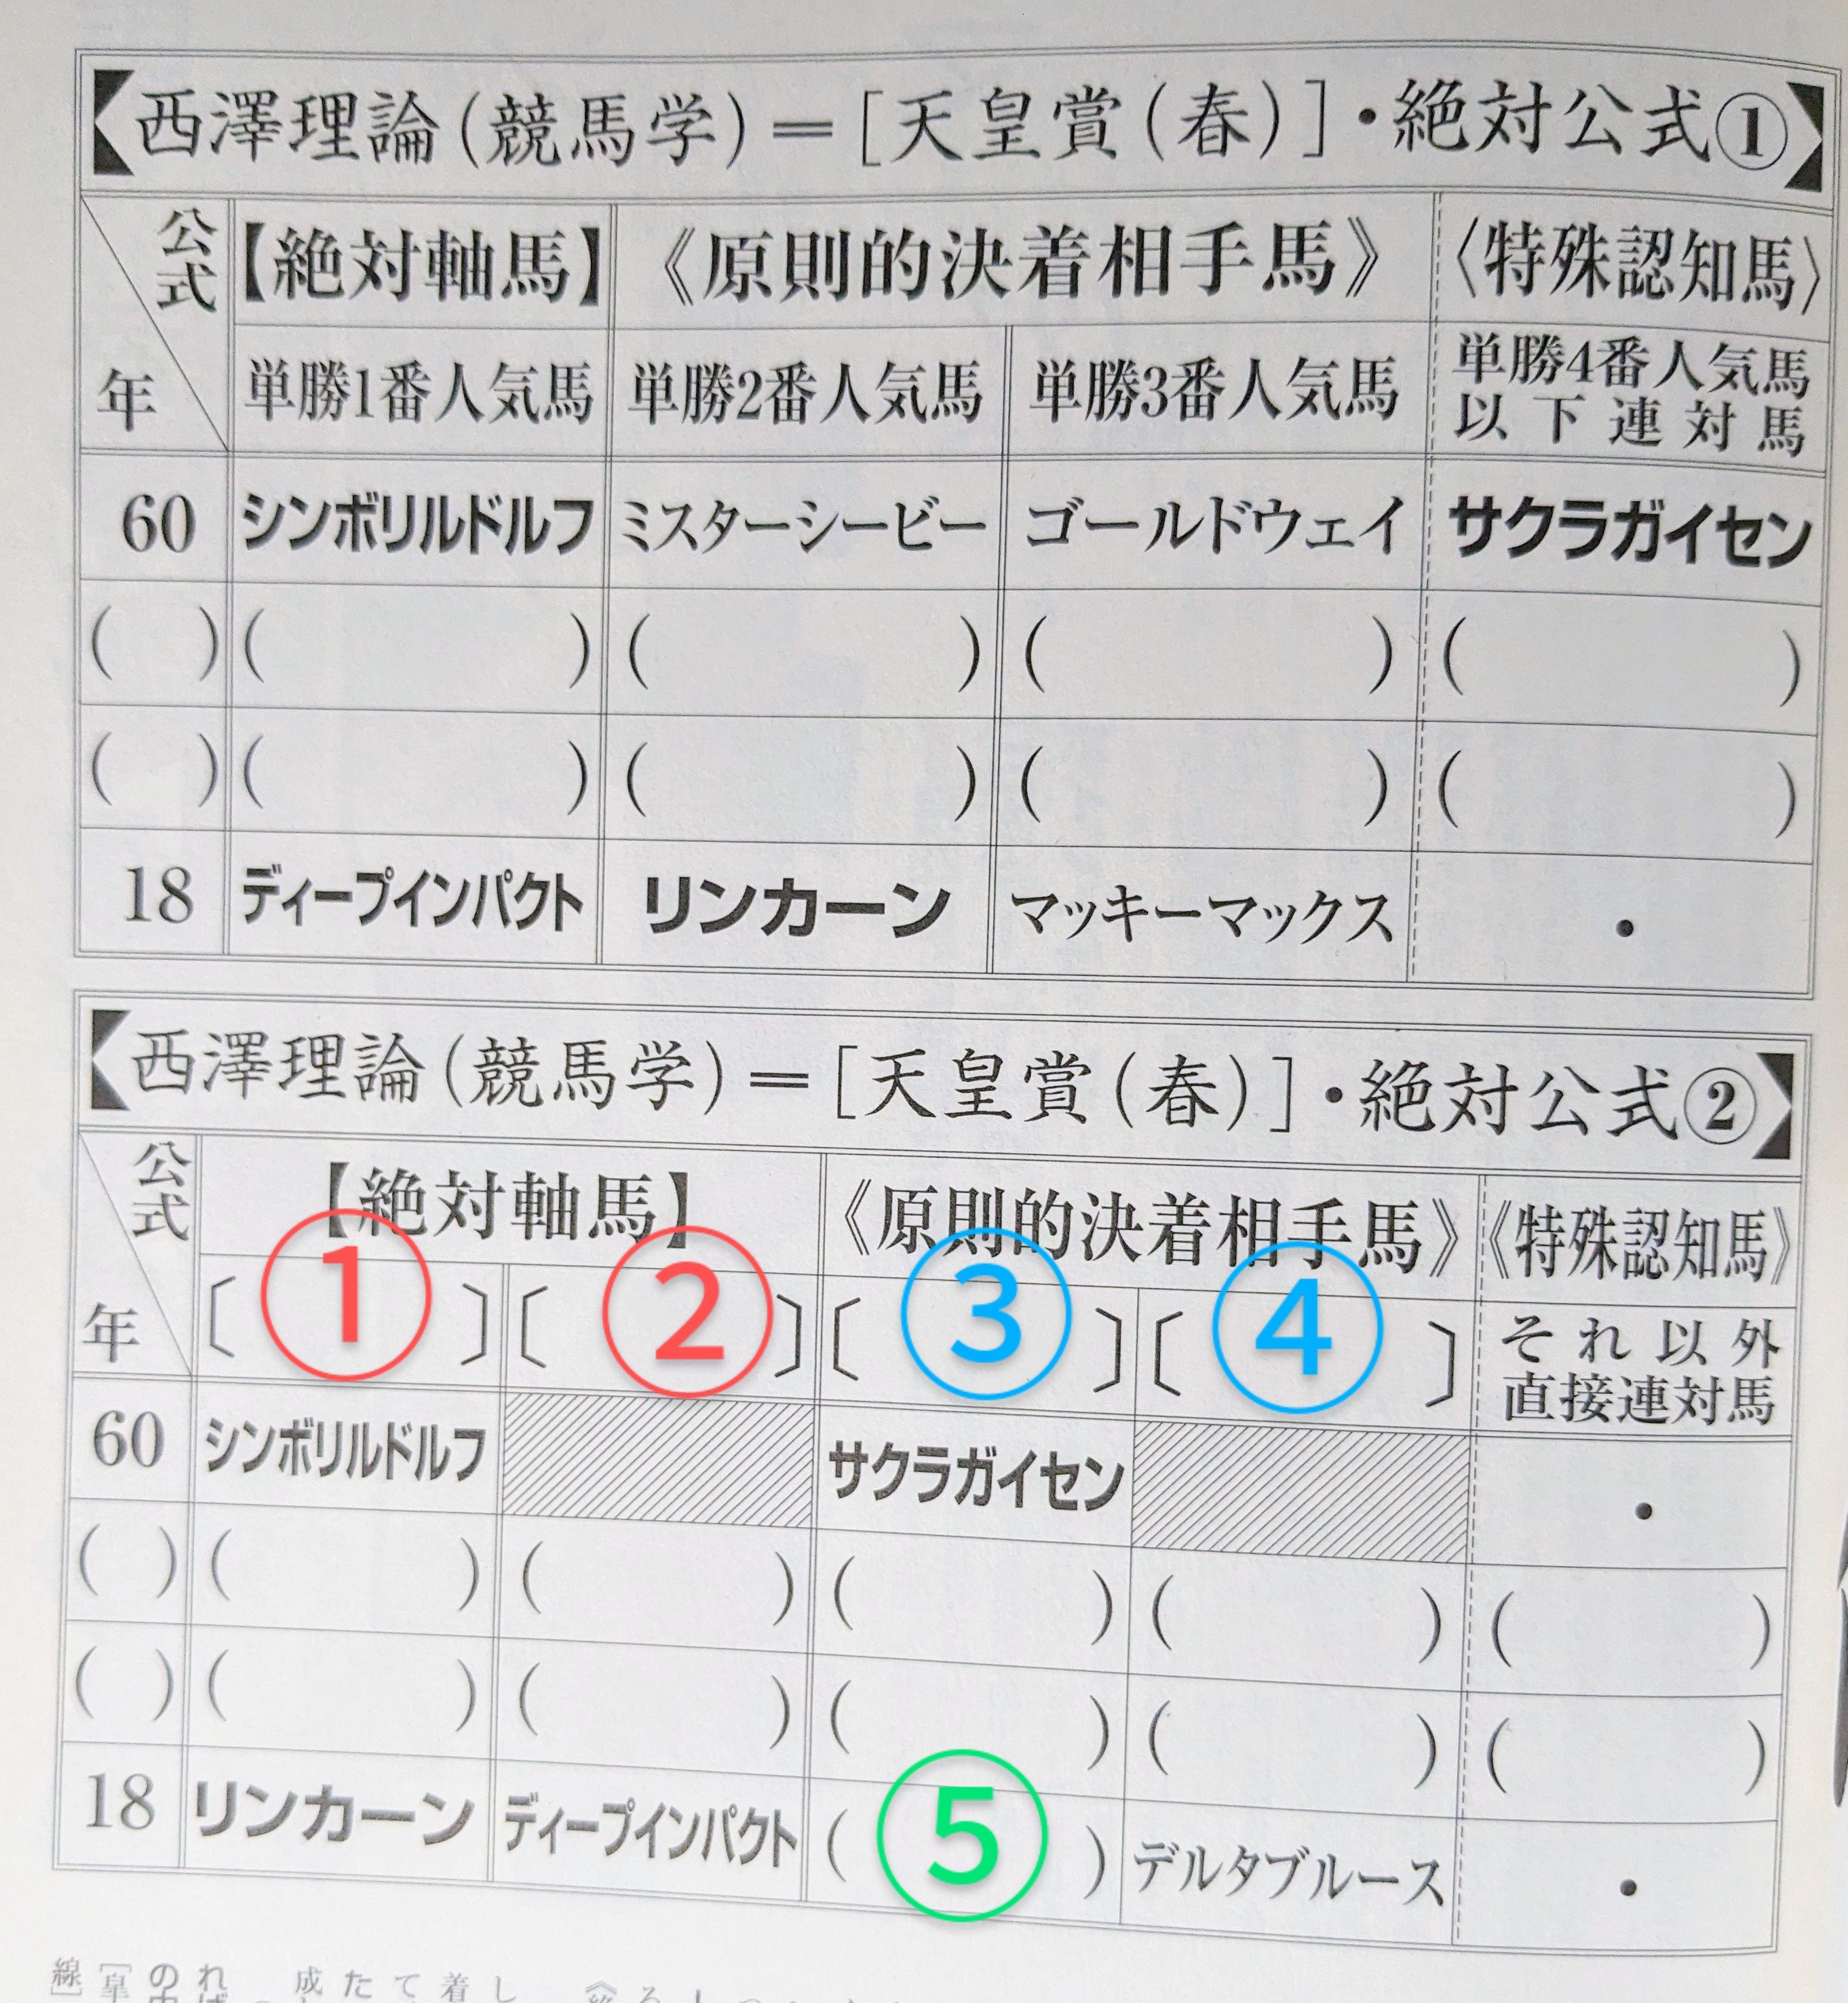 【西澤理論(競馬学)=[天皇賞(春)]・絶対公式①】
公式 【絶対軸馬】 《原則的決着相手馬》 〈特殊認知馬〉
年 単勝1番人気馬 単勝2番人気馬 単勝3番人気馬 単勝4番人気馬
以下連対馬
60 シンボリルドルフ ミスターシービー ゴールドウェイ サクラガイセン
( ) ( ) ( ) ( ) ( )
( ) ( ) ( ) ( ) ( )
18 ディープインパクト リンカーン マッキーマックス ・
【西澤理論(競馬学)=[天皇賞(春)]・絶対公式②】
公式 【絶対軸馬】 《原則的決着相手馬》 《特殊認知馬》
年 〔①〕 〔②〕 〔③〕 〔④〕 それ以外
直接連対馬
60 シンボリルドルフ サクラガイセン ・
( ) ( ) ( ) ( ) ( ) ( )
( ) ( ) ( ) ( ) ( ) ( )
18 リンカーン ディープインパクト (⑤) デルタブルース ・